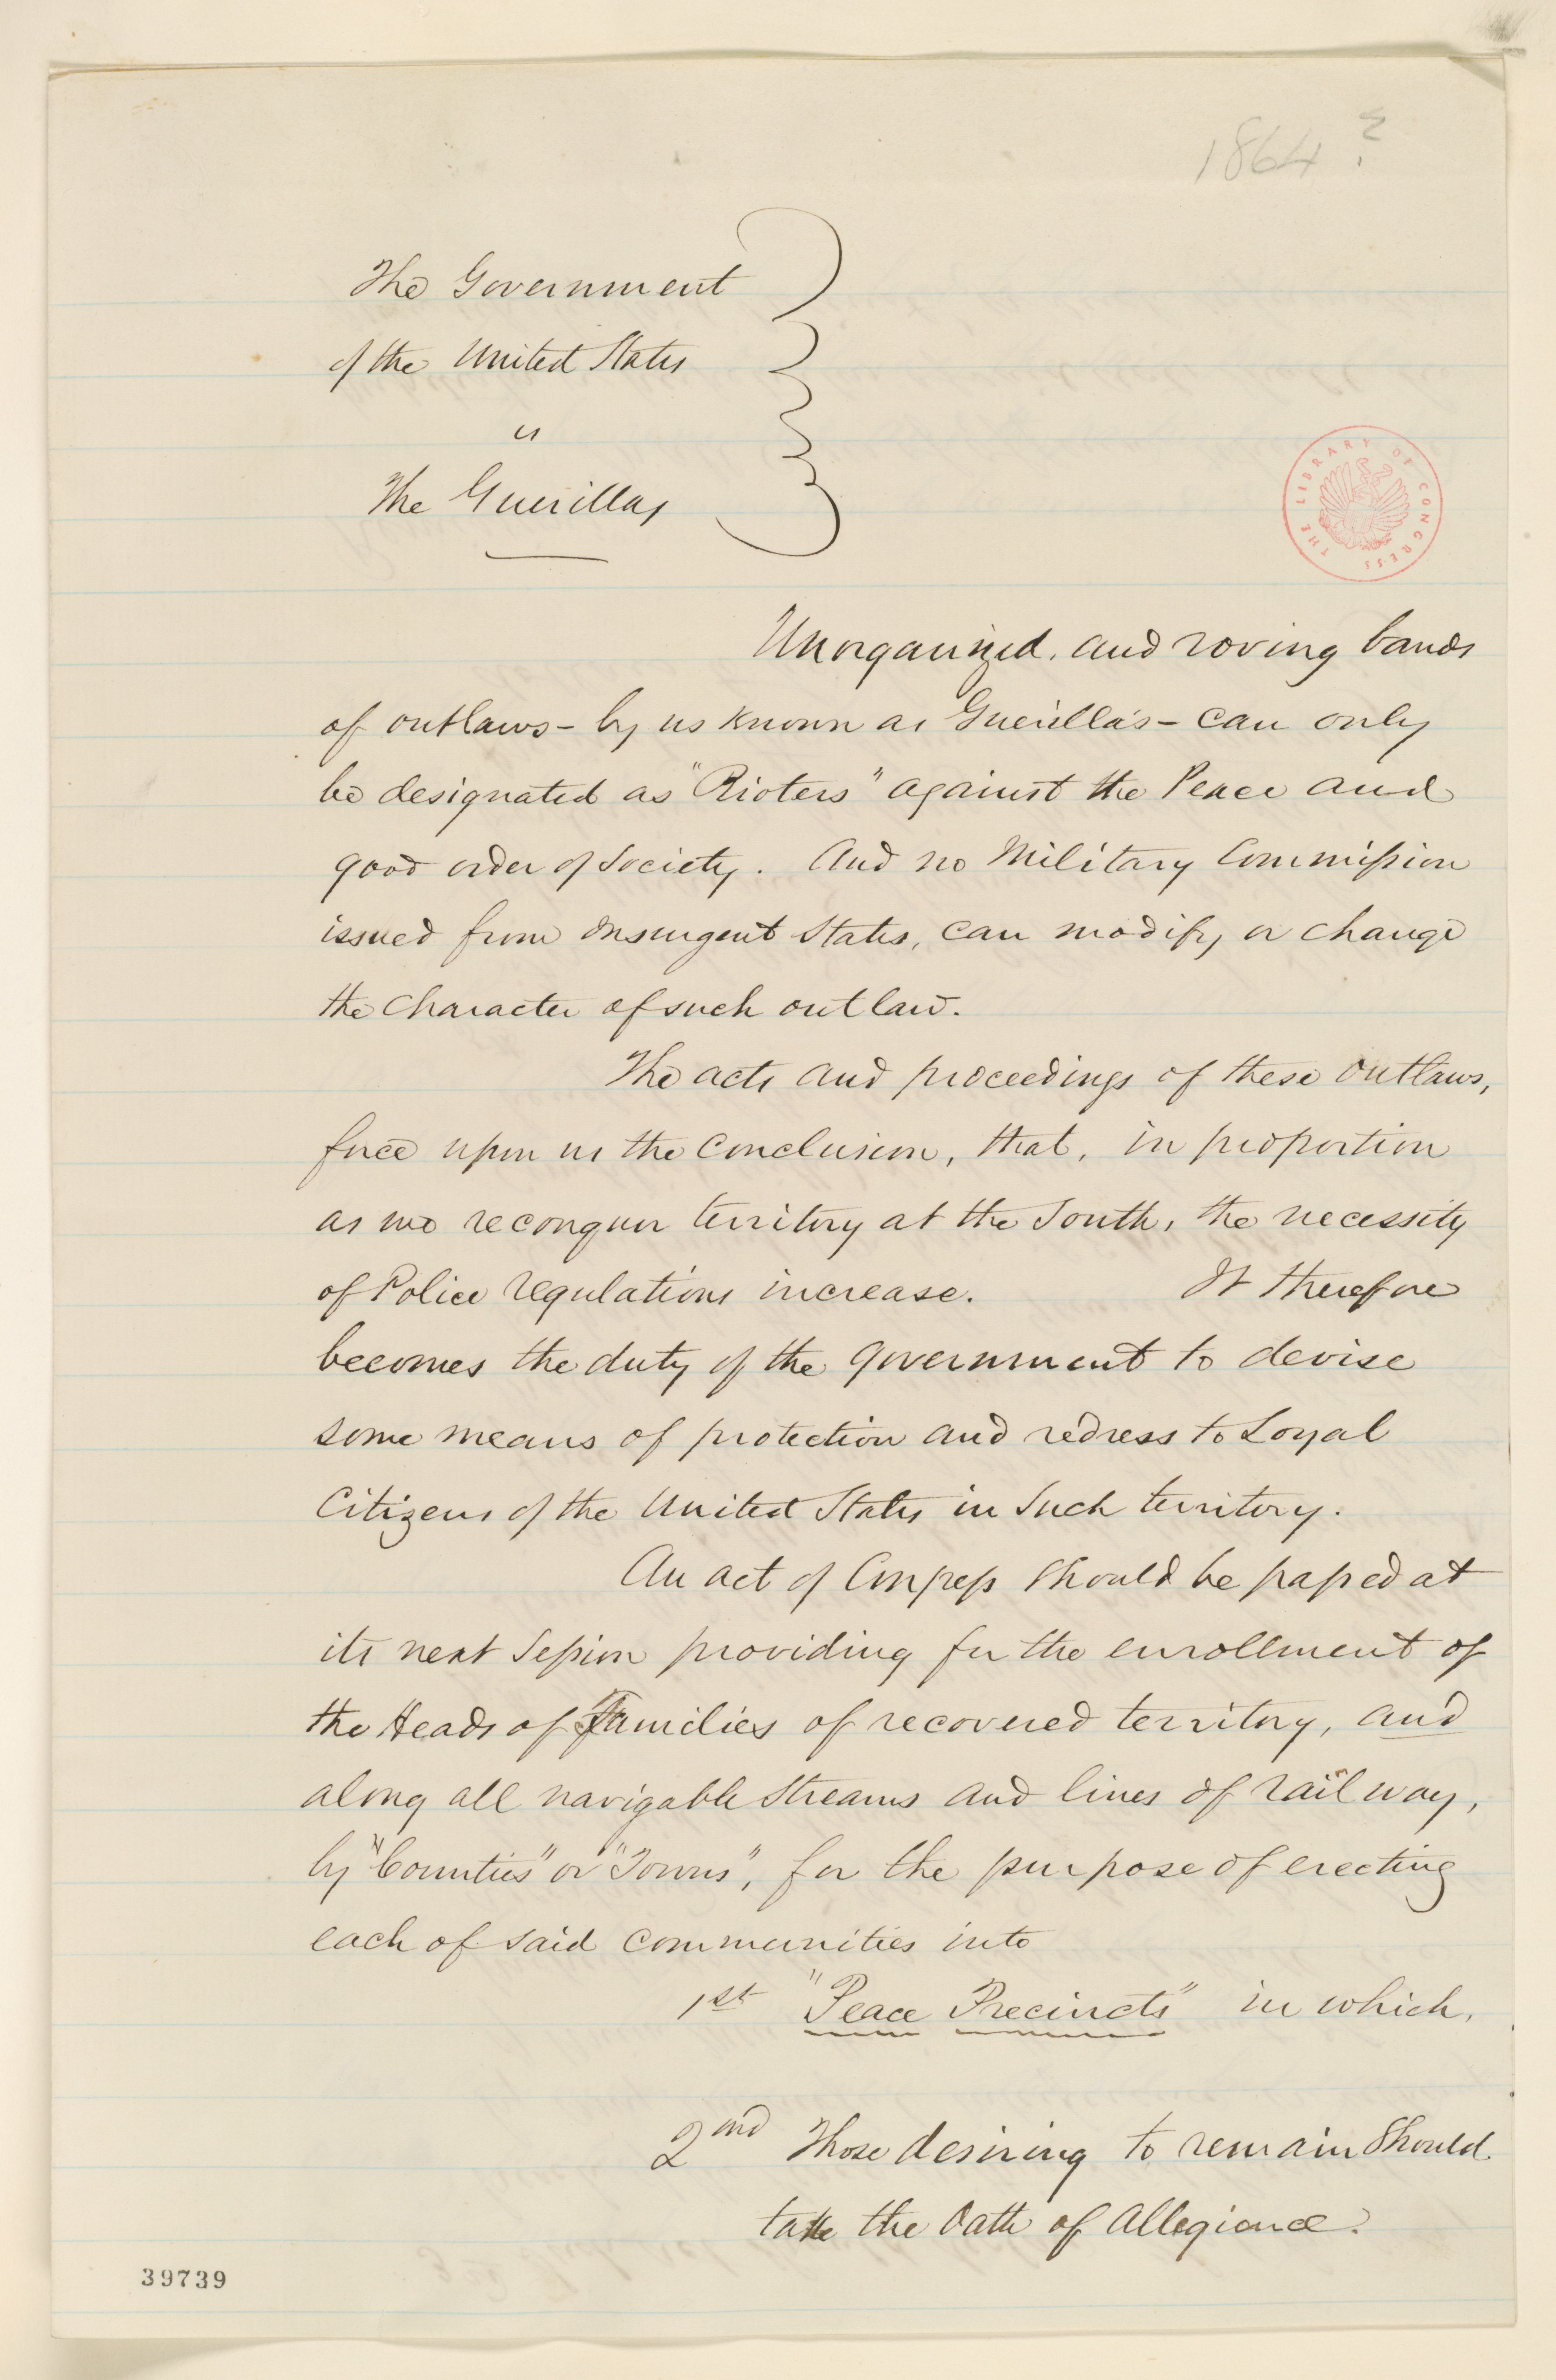 1864?
The Government
of the United States
vs
The Guerillas
THE LIBRARY OF CONGRESS
Unorganized, and roving bands
of outlaws - by us known as Guerilla's - can only
be designated as "Rioters" against the Peace and
good order of Society. And no Military Commission
issued from insurgent States, can modify or change
the character of such outlaw.
The acts and proceedings of these outlaws,
force upon us the conclusion, that, in proportion
as we reconquer territory at the South, the necessity
of Police regulations increase. It therefore
becomes the duty of the government to devise
some means of protection and redress to Loyal
Citizens of the United States in Such territory.
An act of Congress should be passed at
its next Session providing for the enrollment of
the Heads of Families of recovered territory, and
along all navigable streams and lines of railway,
by "Counties" or "Towns", for the purpose of erecting
each of said communities into
1st "Peace Precincts" in which,
2nd Those desiring to remain Should
take the Oath of Allegiance.
39739